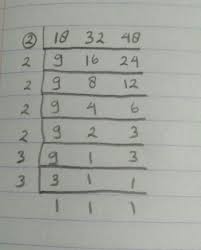 ② 18 32 48
2 9 16 24
2 9 8 12
2 9 4 6
2 9 2 3
3 9 1 3
3 3 1 1
1 1 1